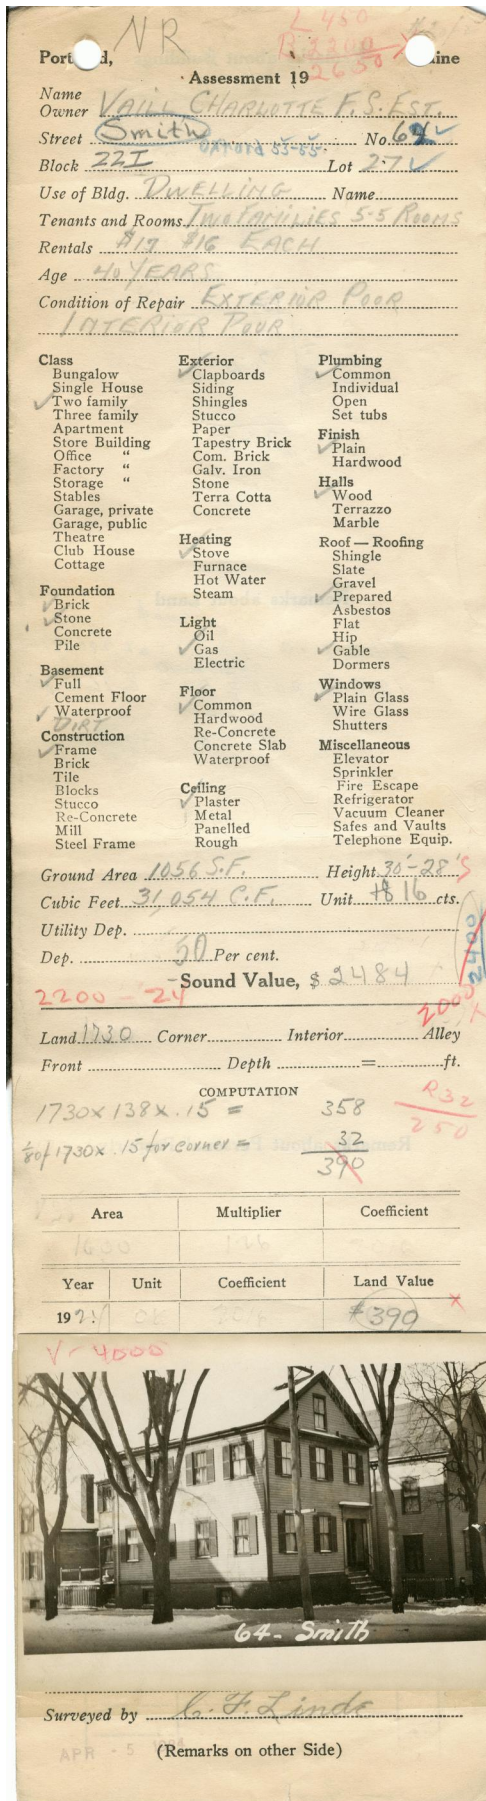 NR
L 450
B 2200
2650
Portland, Maine
Assessment 19
Name
Owner VAILL CHARLOTTE F. S. EST.
Street Smith No. 64
Oxford 53-55
Block 22I Lot 27
Use of Bldg. DWELLING Name
Tenants and Rooms TWO FAMILIES 5-5 ROOMS
Rentals $17 $16 EACH
Age 40 YEARS
Condition of Repair EXTERIOR POOR
INTERIOR POOR
Class
Bungalow
Single House
Two family
Three family
Apartment
Store Building
Office "
Factory "
Storage "
Stables
Garage, private
Garage, public
Theatre
Club House
Cottage
Foundation
Brick
Stone
Concrete
Pile
Basement
Full
Cement Floor
Waterproof
DIRT
Construction
Frame
Brick
Tile
Blocks
Stucco
Re-Concrete
Mill
Steel Frame
Exterior
Clapboards
Siding
Shingles
Stucco
Paper
Tapestry Brick
Com. Brick
Galv. Iron
Stone
Terra Cotta
Concrete
Heating
Stove
Furnace
Hot Water
Steam
Light
Oil
Gas
Electric
Floor
Common
Hardwood
Re-Concrete
Concrete Slab
Waterproof
Ceiling
Plaster
Metal
Panelled
Rough
Plumbing
Common
Individual
Open
Set tubs
Finish
Plain
Hardwood
Halls
Wood
Terrazzo
Marble
Roof — Roofing
Shingle
Slate
Gravel
Prepared
Asbestos
Flat
Hip
Gable
Dormers
Windows
Plain Glass
Wire Glass
Shutters
Miscellaneous
Elevator
Sprinkler
Fire Escape
Refrigerator
Vacuum Cleaner
Safes and Vaults
Telephone Equip.
Ground Area 1056 S.F. Height 30'-28'
Cubic Feet 31,054 C.F. Unit 16 cts.
Utility Dep.
Dep. 50 Per cent.
2400
Sound Value, $ 2484
2200 - 24
2000
Land 1730 Corner Interior Alley
Front Depth = ft.
COMPUTATION
1730 x 138 x .15 = 358
R 32
250
1730 x .15 for corner = 32
390
Area Multiplier Coefficient
Year Unit Coefficient Land Value
192 $390
V- 4000
64- Smith
Surveyed by C. F. Linds
APR - 5
(Remarks on other Side)